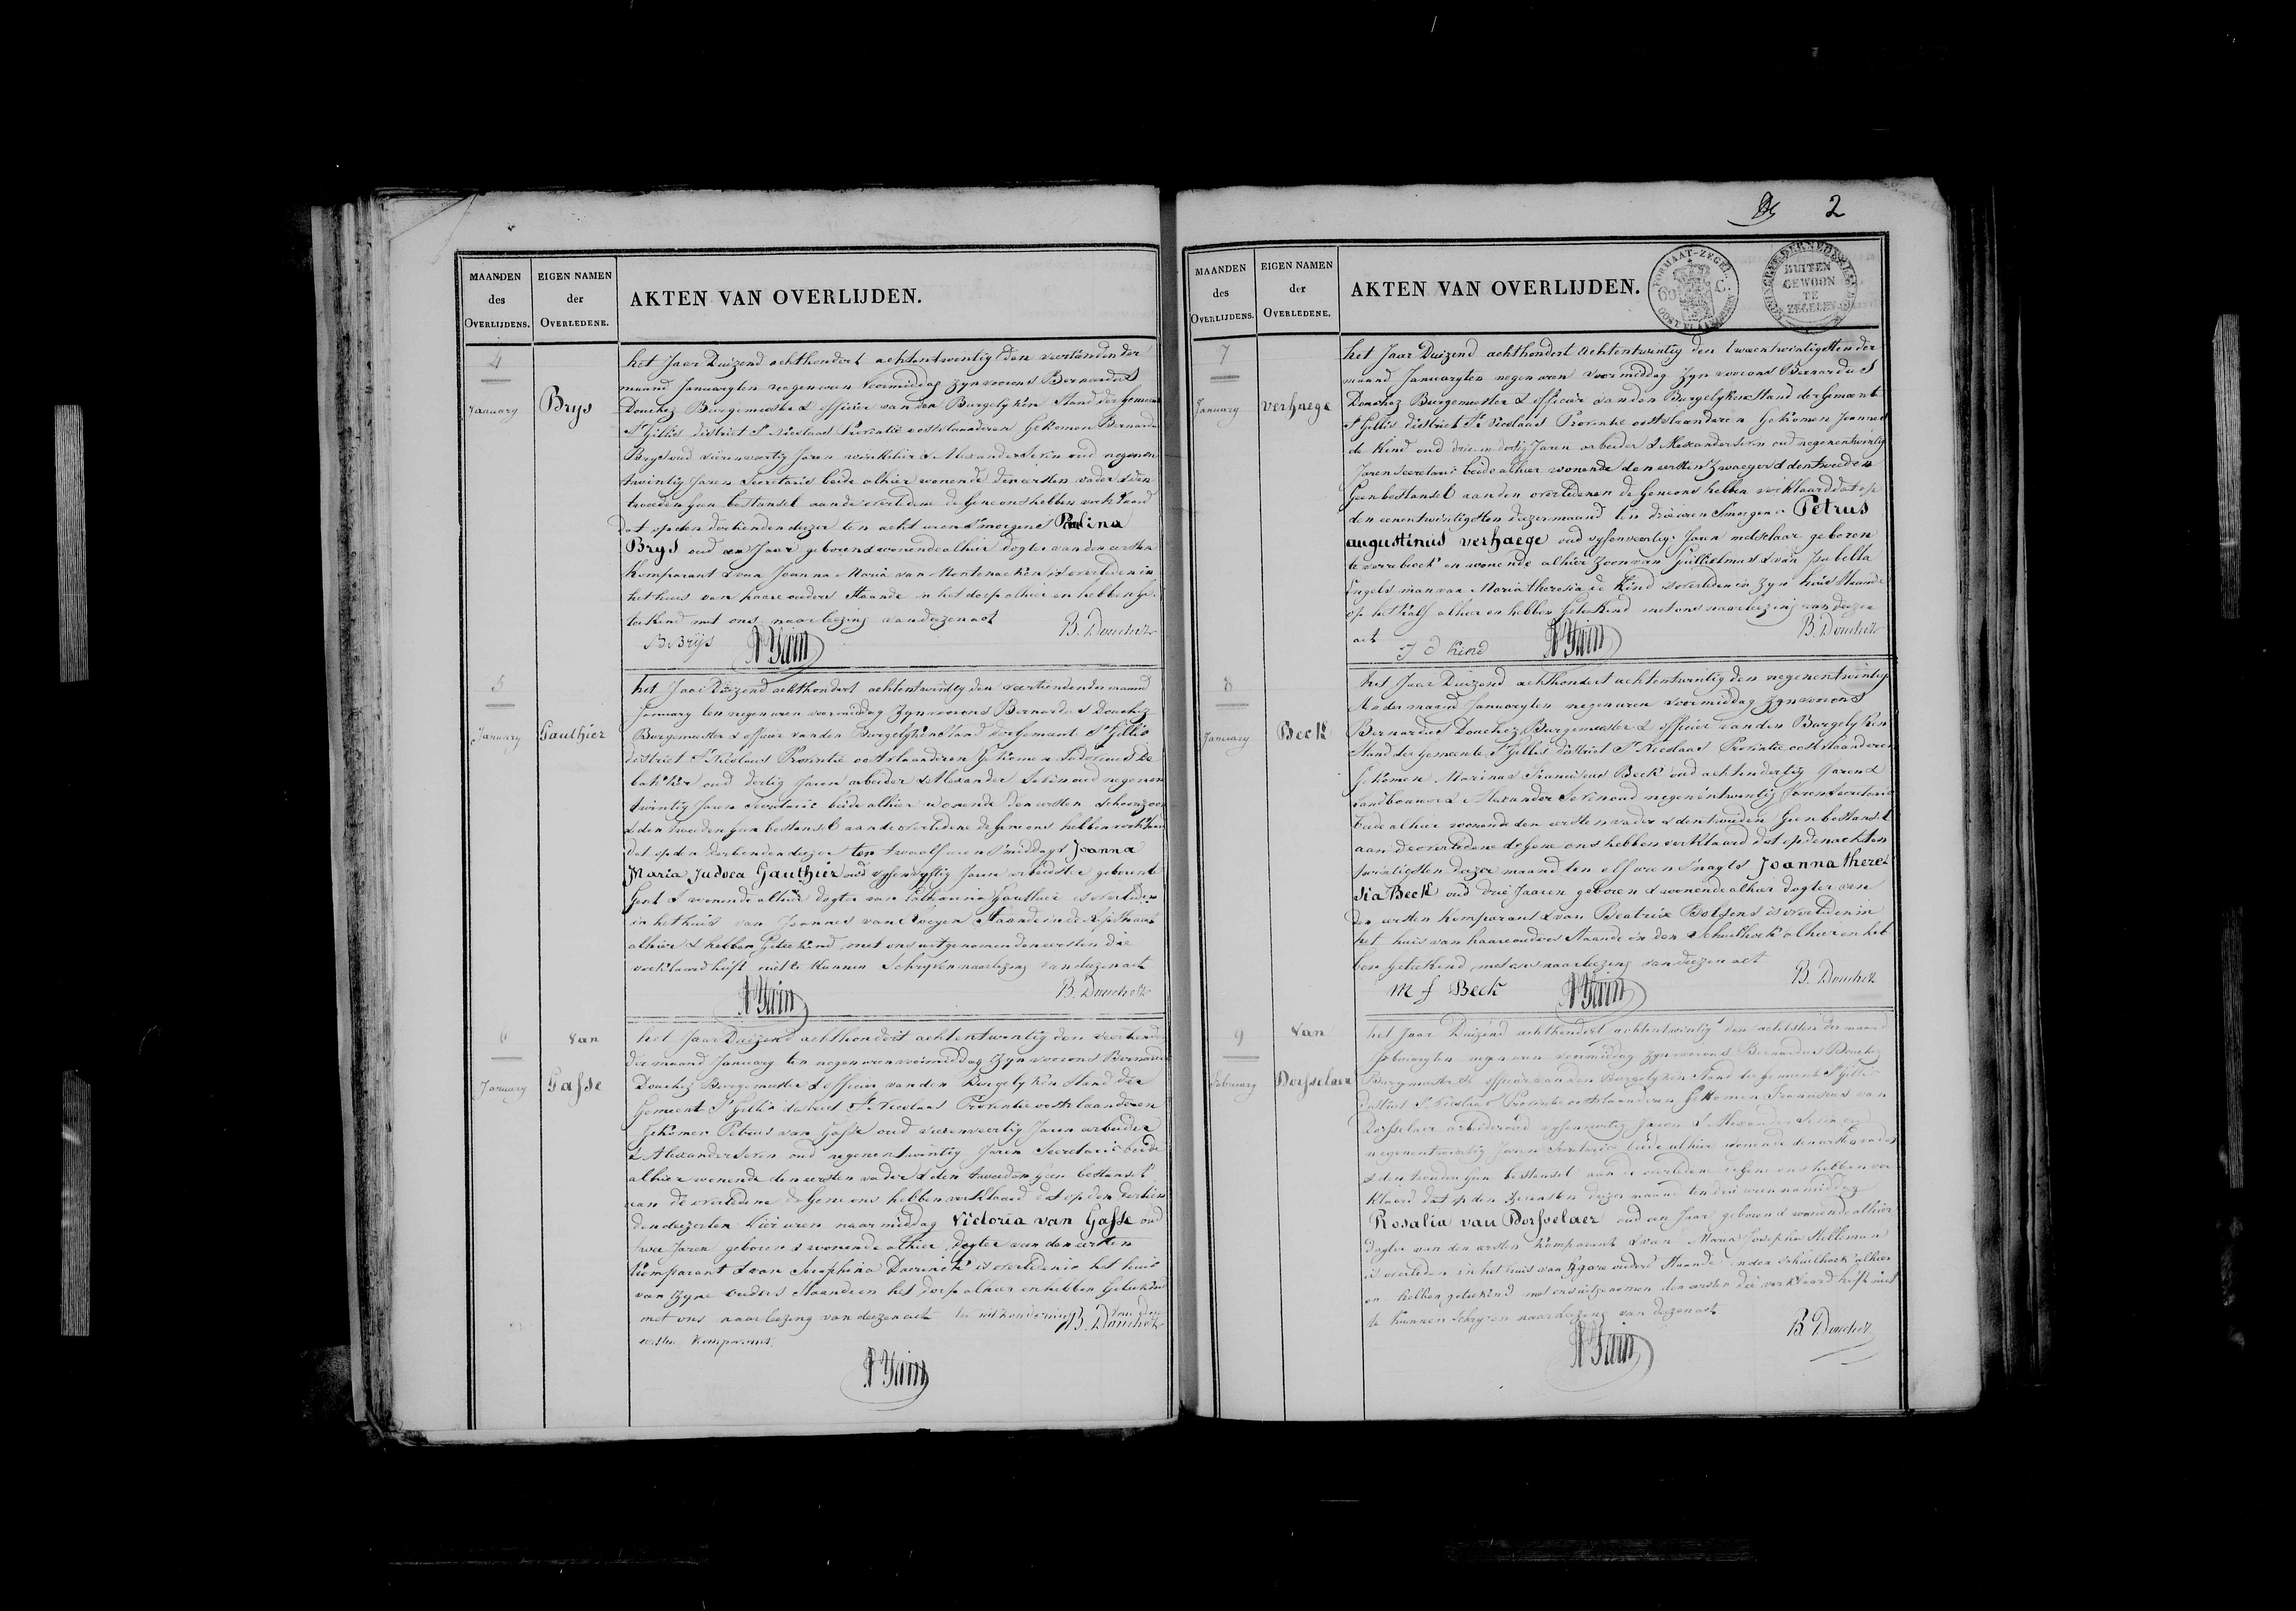 MAANDEN
des
OVERLIJDENS.
EIGEN NAMEN
der
OVERLEDENE.
AKTEN VAN OVERLIJDEN.
4
January
Brys
het Jaar Duizend achthondert achtentwintig den veertienden der
maand January ten negen uren voormiddag zyn voor ons Bernardus
Douchez Burgemeester & officier van den Burgelyken Stand der Gemeente
St Gillis district St Nicolaas Provintie oostvlaanderen Gekomen Bernardus
Brys oud vierenveertig Jaren winkelier & Alexander Serin oud negenen
twintig Jaren Secretaris beide alhier wonende den eersten vader & den
tweeden geen bestansel aan de overledene de Gene ons hebben verklaard
dat op den derthienden dezer ten acht uren smorgens Paulina
Brys oud een Jaar geboren & wonende alhier dogter van den eersten
komparant & van Joanna Maria van Montenaeken is overleden in
het huis van haare ouders Staande in het dorp alhier en hebben ge-
teekend met ons naar lezing van dezen act
B. Brÿs
B. Douchez
5
January
Gauthier
het Jaar Duizend achthondert achtentwintig den veertienden der maand
January ten negen uren voormiddag zyn voor ons Bernardus Douchez
Burgemeester & officier van den Burgelyken Stand der Gemeente St Gillis
district St Nicolaas Provintie oostvlaanderen Gekomen Ludovicus de
bakker oud dertig Jaren arbeider & Alexander Serin oud negenen
twintig Jaren Secretaris beide alhier wonende den eersten schoonzoon
& den tweeden geen bestansel aan de overledene de Gene ons hebben verklaard
dat op den derthienden dezer ten twaalf uren smiddags Joanna
Maria Judoca Gauthier oud vyfenvyftig Jaren arbeidster geboren te
Gent & wonende alhier dogter van Catharina Gauthier is overleden
in het huis van Joannes van Staande in de alhier & hebben Geteekend met ons uitgenomen den eersten die
verklaard heeft niet te kunnen Schryven naar lezing van dezen act
B. Douchez
6
January
Van
Gasse
het Jaar Duizend achthondert achtentwintig den veertienden
der maand January ten negen uren voormiddag zyn voor ons Bernardus
Douchez Burgemeester & officier van den Burgelyken Stand der
Gemeente St Gillis district St Nicolaas Provintie oostvlaanderen
Gekomen Petrus van Gasse oud vierenveertig Jaren arbeider
& Alexander Serin oud negenentwintig Jaren Secretaris beide
alhier wonende den eersten vader & den tweeden geen bestansel
aan de overledene de Gene ons hebben verklaard dat op den derthien
den dezer ten vier uren naarmiddag Victoria van Gasse oud
twee Jaren geboren & wonende alhier dogter van den eersten
komparant & van Josephina is overleden in het huis
van zyne ouders Staande in het dorp alhier en hebben Geteekend
met ons naar lezing van dezen act ter uitzondering van den
eersten komparant.
B. Douchez
2
MAANDEN
des
OVERLIJDENS.
EIGEN NAMEN
der
OVERLEDENE.
AKTEN VAN OVERLIJDEN.
FORMAAT-ZEGEL
60 C.
BUITEN
GEWOON
TE
ZEGELEN
7
January
verhaege
het Jaar Duizend achthondert achtentwintig den tweentwintigsten der
maand January ten negen uren voormiddag zyn voor ons Bernardus
Douchez Burgemeester & officier van den Burgelyken Stand der Gemeente
St Gillis district St Nicolaas Provintie oostvlaanderen Gekomen Joannes
de Kind oud drie-en-dertig Jaren arbeider & Alexander Serin oud negenentwintig
Jaren Secretaris beide alhier wonende den eersten zwaeger & den tweeden
Geen bestansel aan den overledenen de Gene ons hebben verklaard dat op
den eenentwintigsten dezer maand ten drie uren Smorgens Petrus
augustinus verhaege oud vyfenveertig Jaren metselaar geboren
te verrebroek en wonende alhier zoon van Guillielmus & van Isabella
Engels man van Maria theresia de Kind is overleden in zyn huis Staande
op het Kalf alhier en hebben Geteekend met ons naar lezing van dezen
act
J d Kind
B. Douchez
8
January
Beck
het Jaar Duizend achthondert achtentwintig den negenentwintig
sten der maand January ten negen uren voormiddag zyn voor ons
Bernardus Douchez Burgemeester & officier van den Burgelyken
Stand der Gemeente St Gillis district St Nicolaas Provintie oostvlaanderen
Gekomen Marinus Franciscus Beck oud achtendertig Jaren
Landbouwer & Alexander Serin oud negenentwintig Jaren Secretaris
beide alhier wonende den eersten vader & den tweeden Geen bestansel
aan de overledene de Gene ons hebben verklaard dat op den achten
twintigsten dezer maand ten elf uren snagts Joanna there-
sia Beck oud drie Jaaren geboren & wonende alhier dogter van
den eersten komparant & van Beatrix is overleden in
het huis van haare ouders Staande in den Schuilhoek alhier en heb
ben Geteekend met ons naar lezing van dezen act
M f Beck
B. Douchez
9
February
Van
Dorsselaer
het Jaar Duizend achthondert achtentwintig den achtsten der maand
February ten negen uren voormiddag zyn voor ons Bernardus Douchez
Burgemeester & officier van den Burgelyken Stand der Gemeente St Gillis
district St Nicolaas Provintie oostvlaanderen Gekomen Franciscus van
Dorsselaer arbeider oud vyfenveertig Jaren & Alexander Serin oud
negenentwintig Jaren Secretaris beide alhier wonende den eersten vader
& den tweeden Geen bestansel aan de overledene de Gene ons hebben ver
klaard dat op den zevensten dezer maand ten drie uren namiddag
Rosalia van Dorsselaer oud een Jaar geboren & wonende alhier
dogter van den eersten komparant & van Maria Josephа
is overleden in het huis van zyne ouders Staande in den Schuilhoek alhier
en hebben geteekend met ons uitgenomen den eersten die verklaard heeft niet
te kunnen Schryven naar lezing van dezen act
B. Douchez